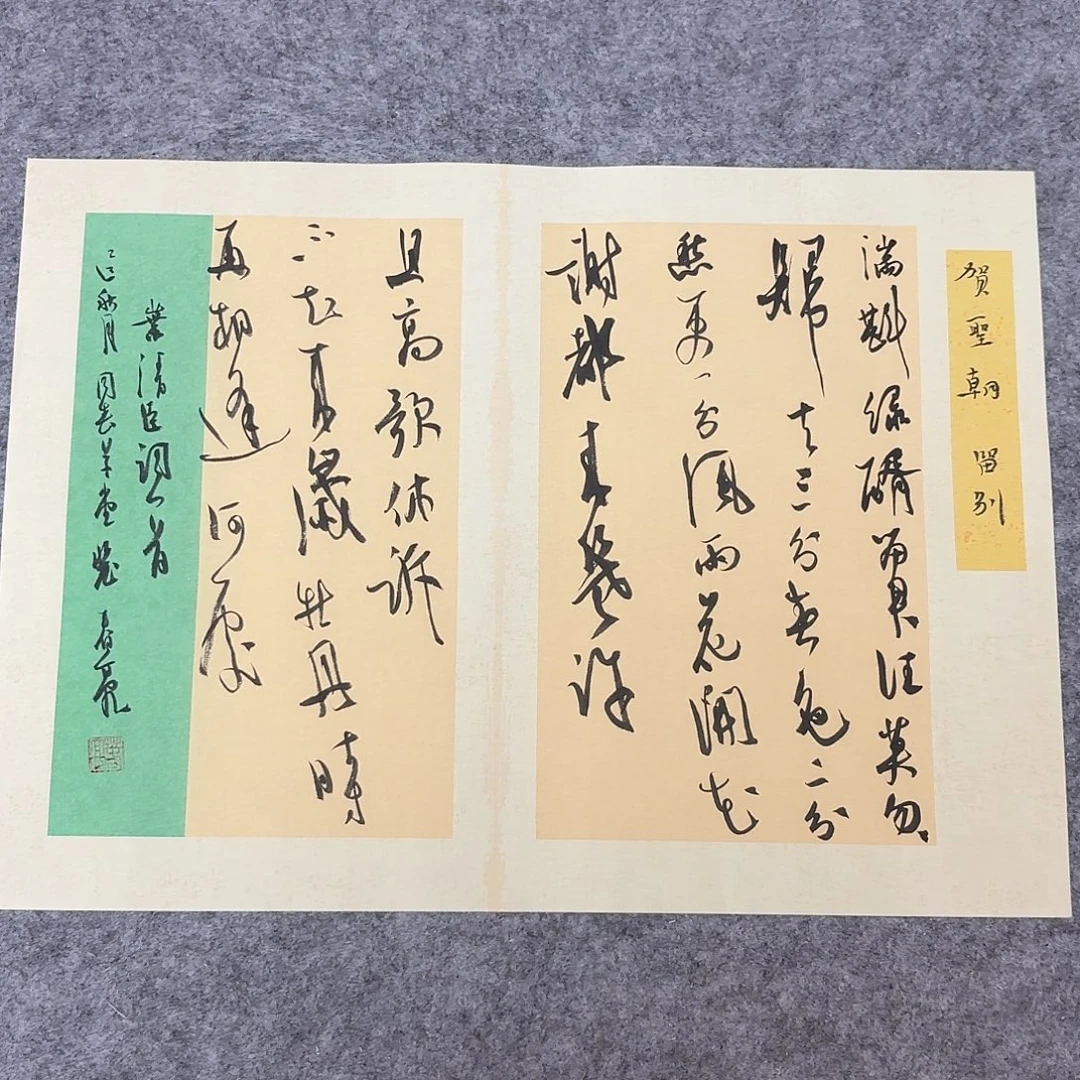 賀聖朝 留別
滿斟綠醑留君住莫匆〻
歸去三分春色二分
愁更一分風雨花開花
謝都来幾許
且高歌休訴
不知来歲牡丹時
再相逢何處
葉清臣詞一首
乙巳秋月